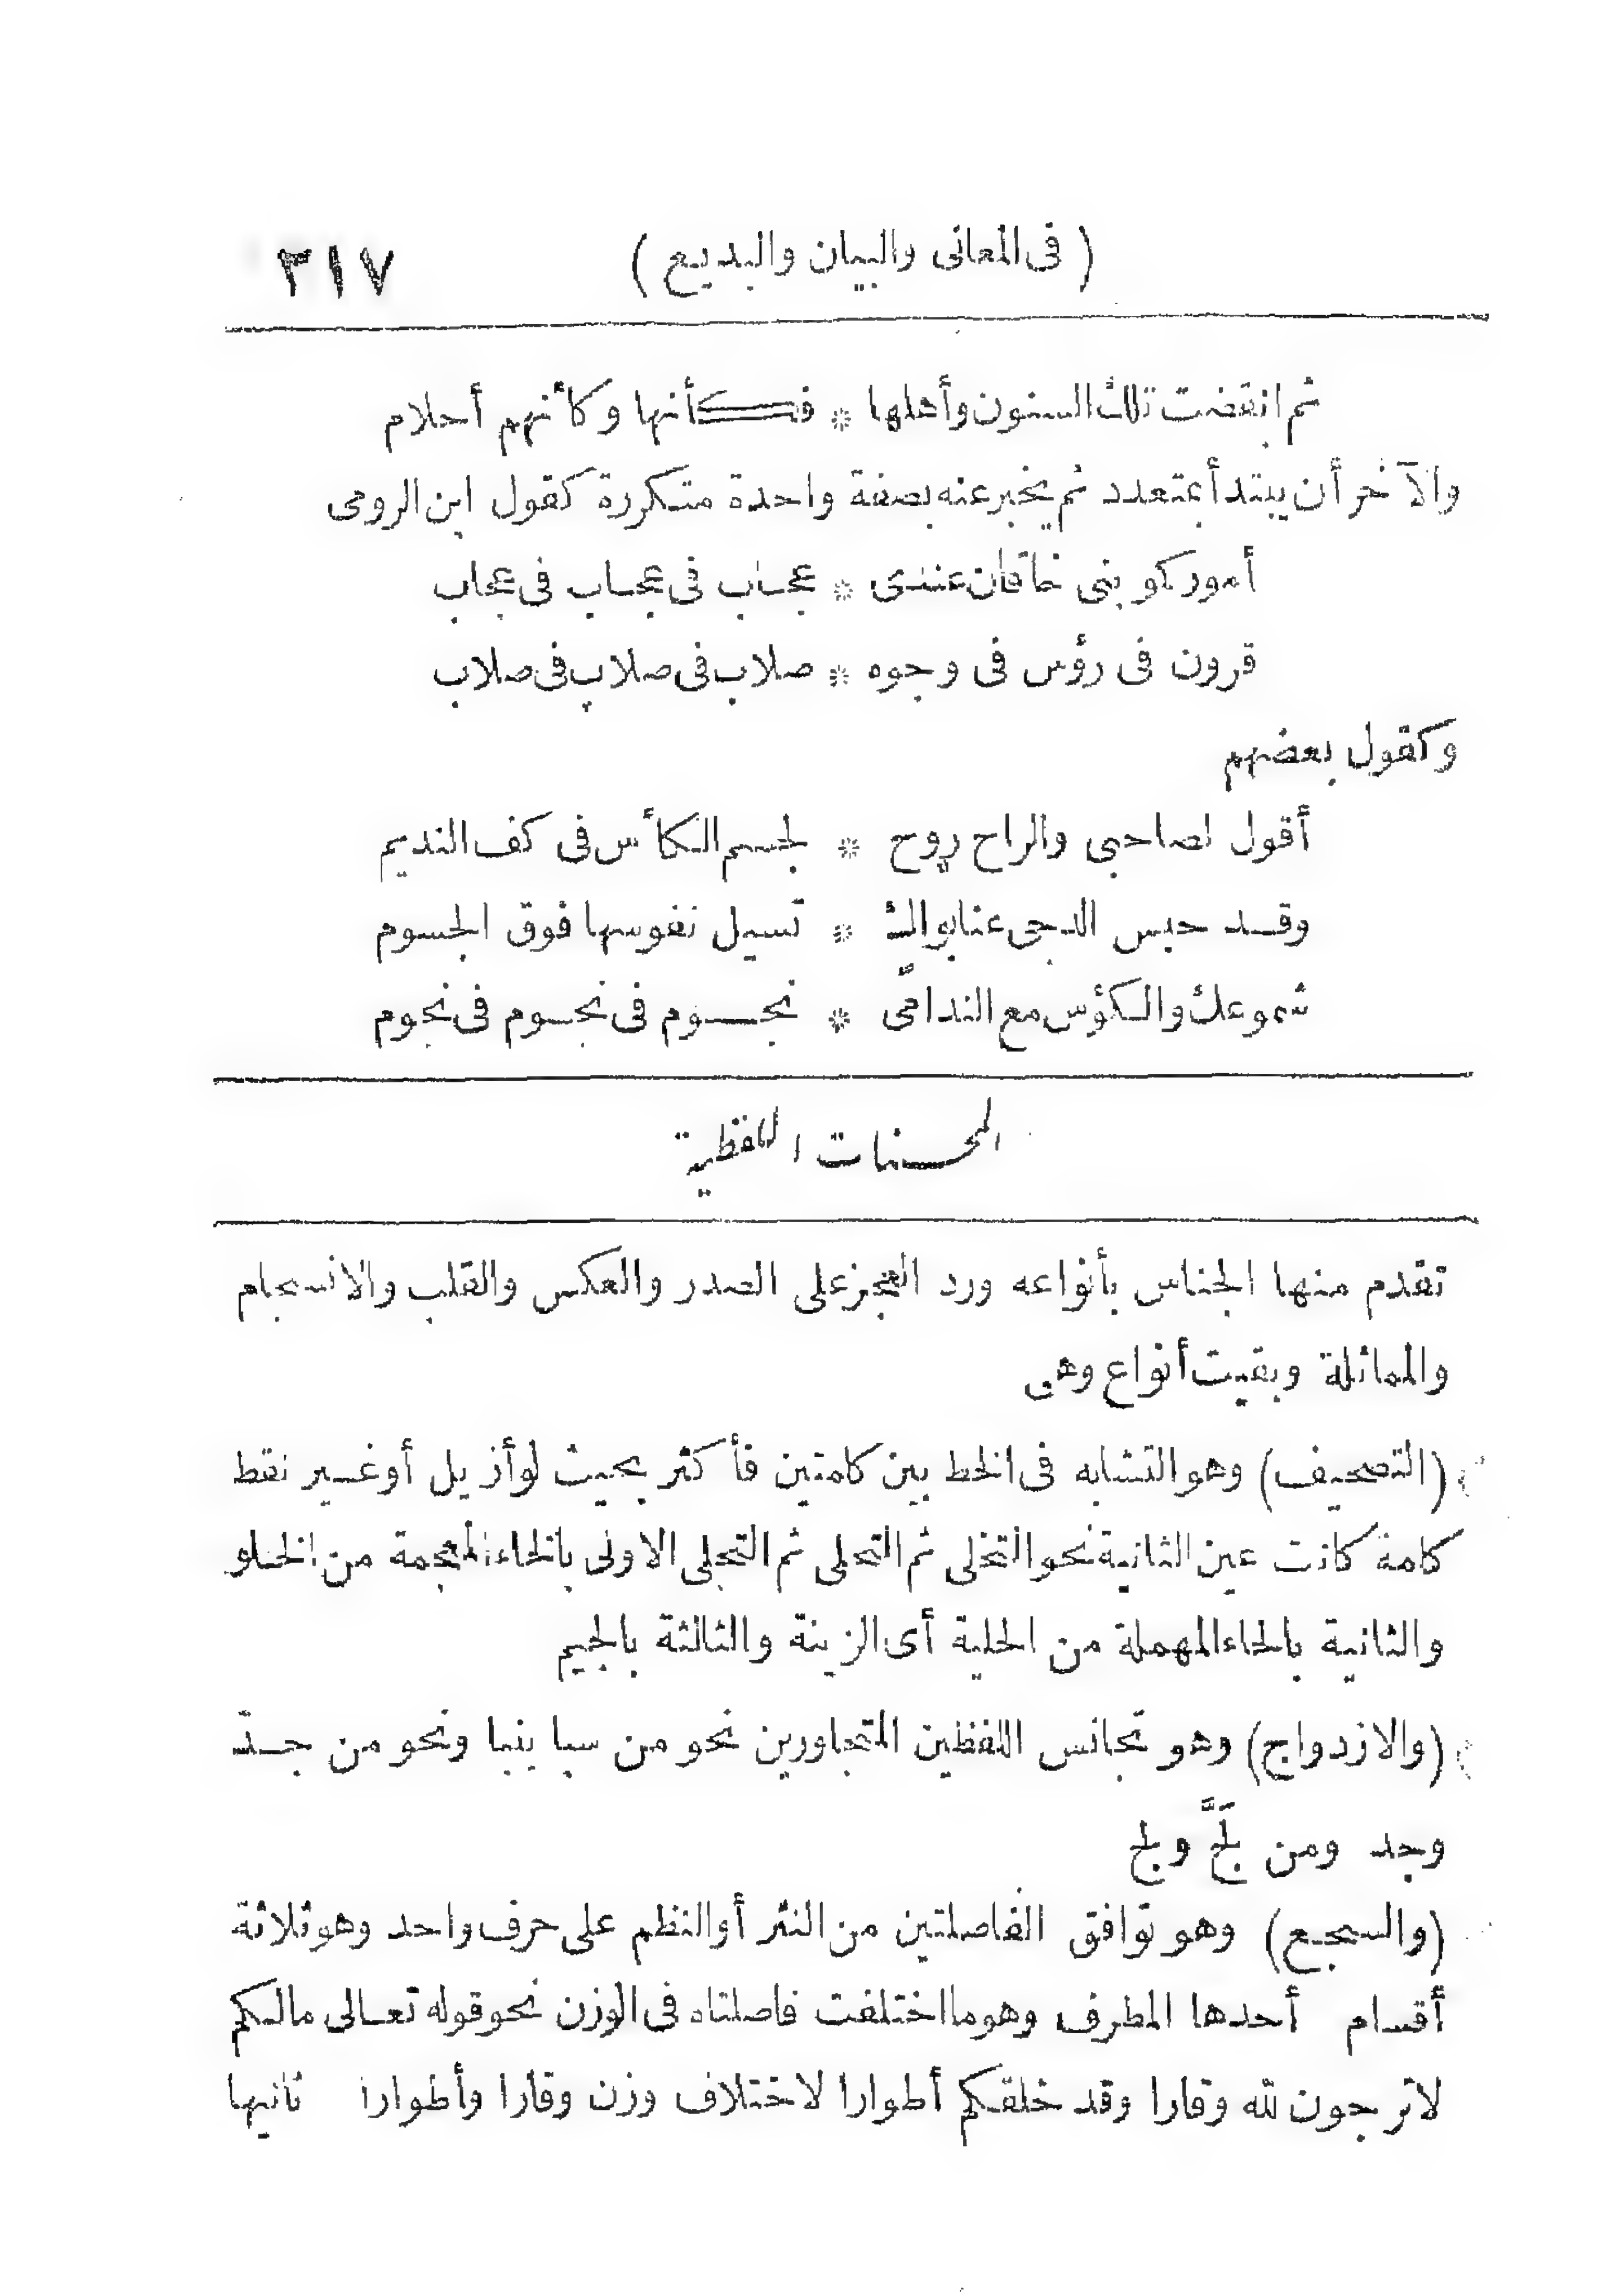 (فى المعانى والبيان والبديع) ٣١٧
ثم انقضت تلك السنون وأهلها * فكأنها وكأنهم أحلام
والآخر أن يبتدأ بمتعدد ثم يخبر عنه بصفة واحدة متكررة كقول ابن الرومى
أموركمو بنى خاقان عندى * عجاب فى عجاب فى عجاب
قرون فى رؤس فى وجوه * صلاب فى صلاب فى صلاب
وكقول بعضهم
أقول لصاحبى والراح روح * لجسم الكأس فى كف النديم
وقد حبس الدجى عنا بواك * تسيل نفوسها فوق الجسوم
شموعك والكؤس مع الندامى * نجوم فى نجوم فى نجوم
المحسنات اللفظية
تقدم منها الجناس بأنواعه ورد العجز على الصدر والعكس والقلب والانسجام
والمماثلة وبقيت أنواع وهى
(التصحيف) وهو التشابه فى الخط بين كلمتين فأكثر بحيث لو أزيل أو غير نقط
كلمة كانت عين الثانية نحو التخلى ثم التحلى ثم التجلى الاولى بالخاء المعجمة من الخلو
والثانية بالحاء المهملة من الحلية أى الزينة والثالثة بالجيم
(والازدواج) وهو تجانس اللفظين المتجاورين نحو من سبا بنبا ونحو من جدّ
وجد ومن لَجَّ ولج
(والسجع) وهو توافق الفاصلتين من النثر أو النظم على حرف واحد وهو ثلاثة
أقسام أحدها المطرف وهو ما اختلفت فاصلتاه فى الوزن نحو قوله تعالى مالكم
لا ترجون لله وقارا وقد خلقكم أطوارا لاختلاف وزن وقارا وأطوارا ثانيها